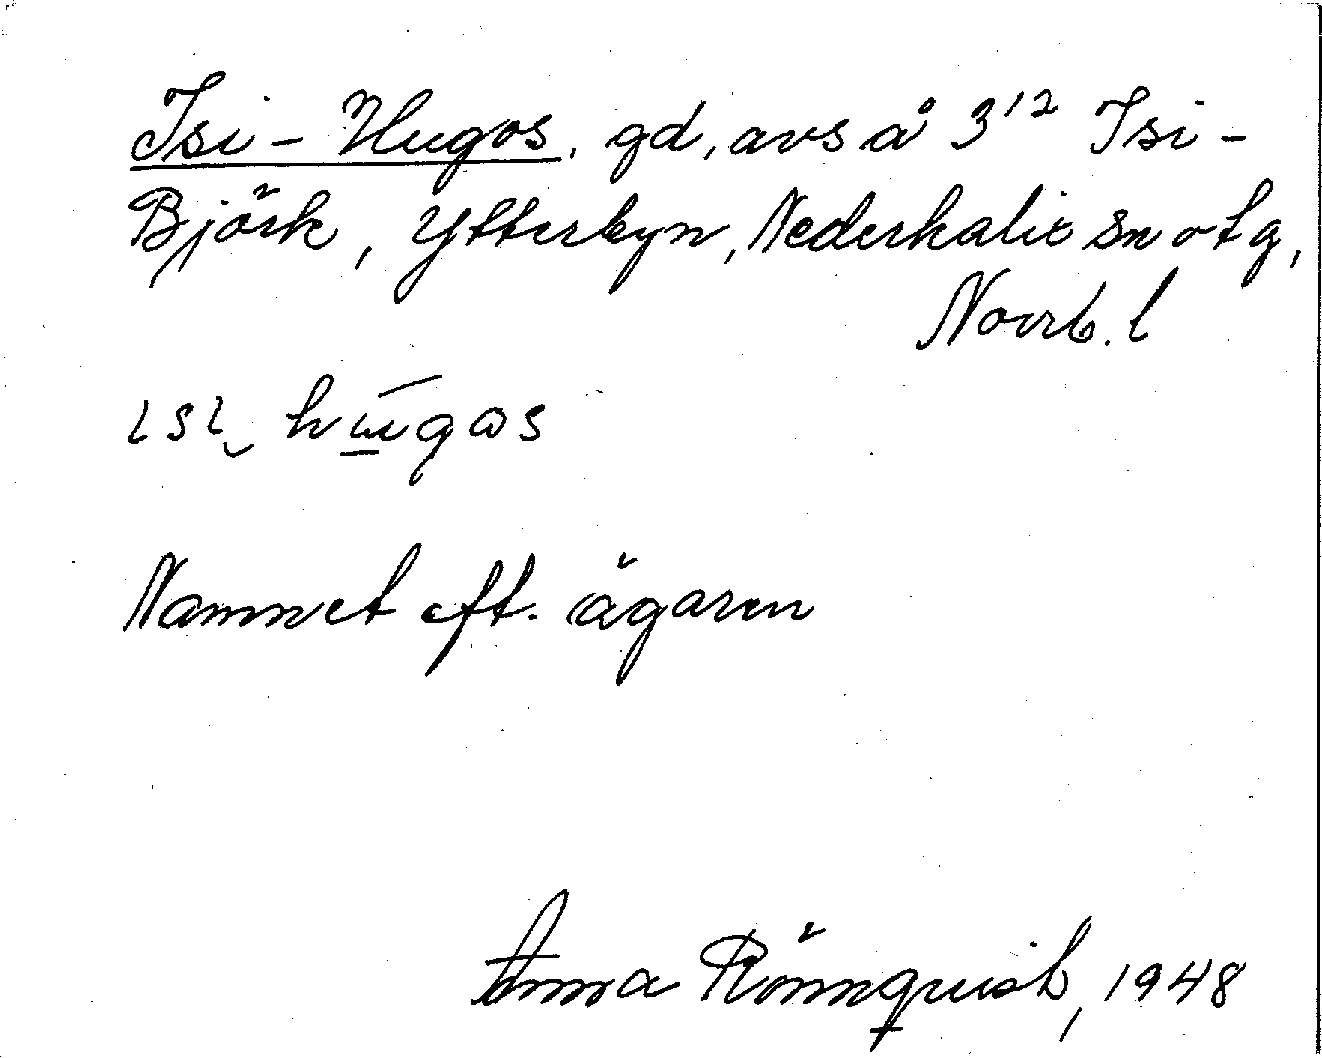 Isi-Hugos, gd, avs å 3¹² Isi-
Björk, Ytterbyn, Nederkalix sn o tg,
Norrb. l
ɩsɩ hɯgos
Namnet eft. ägaren
Anna Rönnquist, 1948